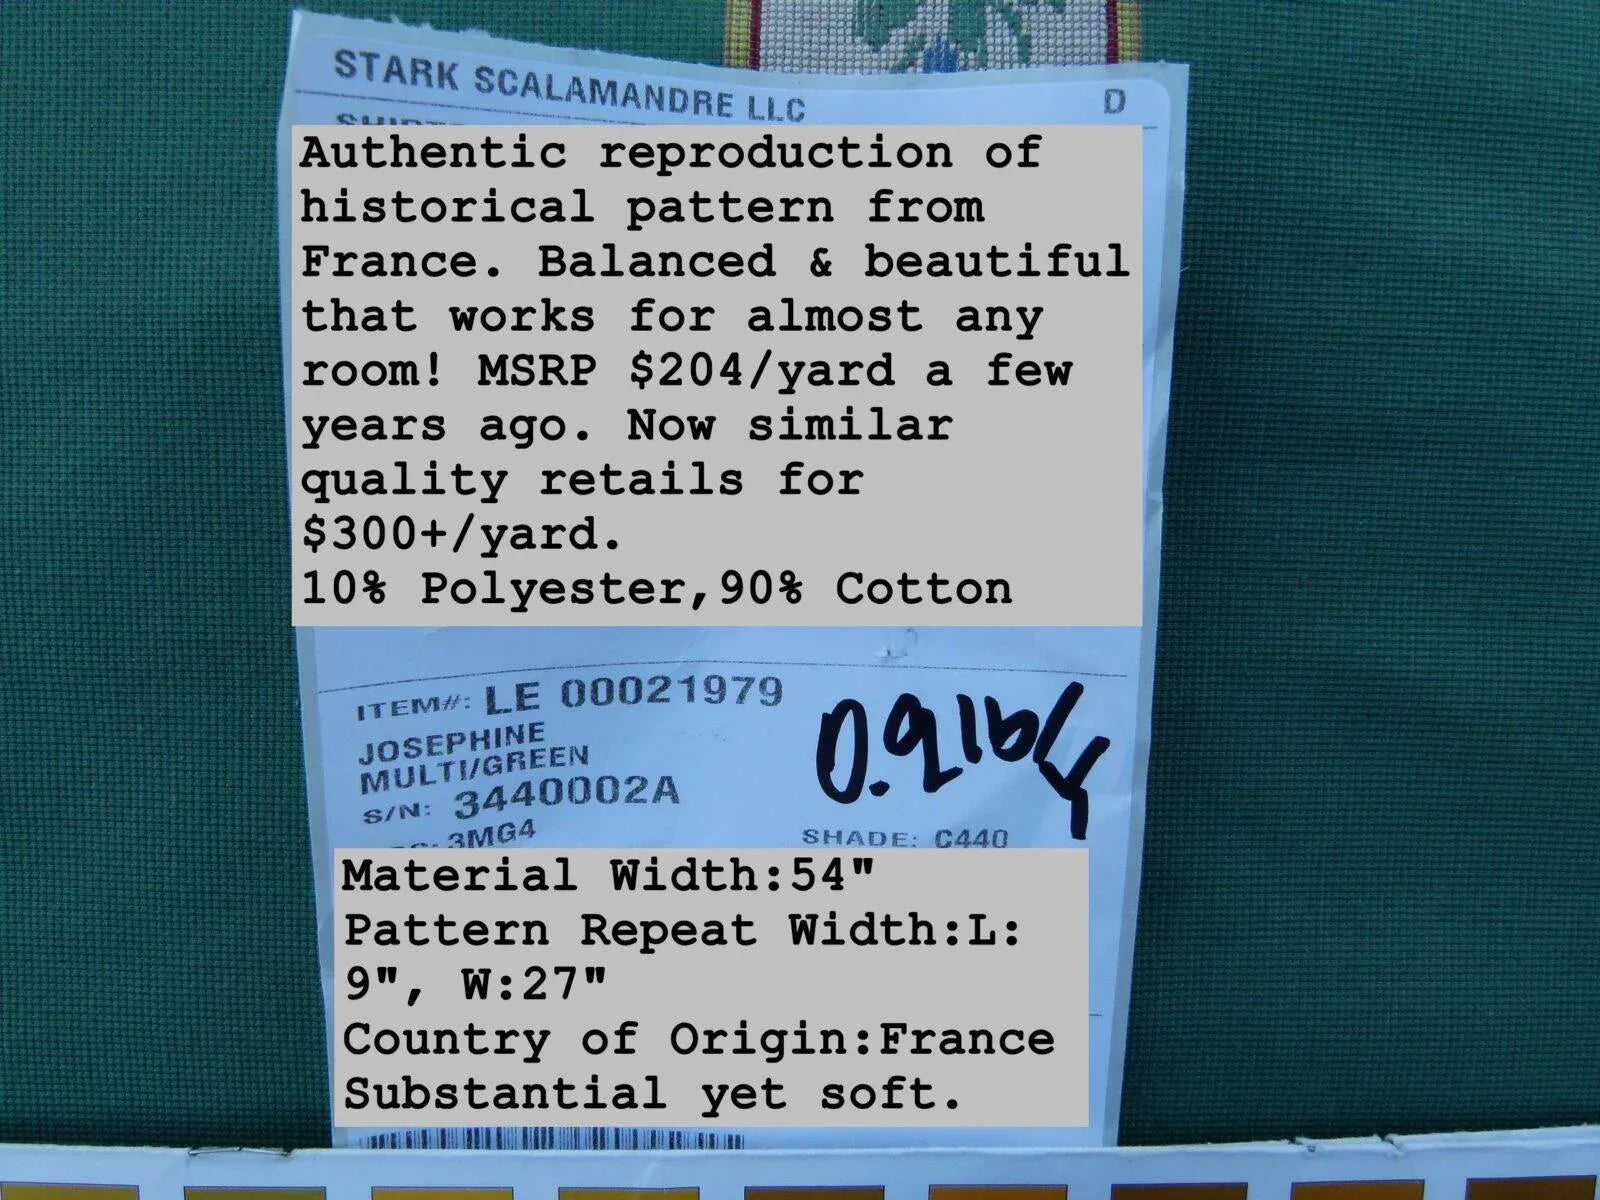 STARK SCALAMANDRE LLC
D
Authentic reproduction of
historical pattern from
France. Balanced & beautiful
that works for almost any
room! MSRP $204/yard a few
years ago. Now similar
quality retails for
$300+/yard.
10% Polyester,90% Cotton
ITEM#: LE 00021979
JOSEPHINE
MULTI/GREEN
S/N: 3440002A
0.9lb/y
3MG4
SHADE: C440
Material Width:54"
Pattern Repeat Width:L:
9", W:27"
Country of Origin:France
Substantial yet soft.